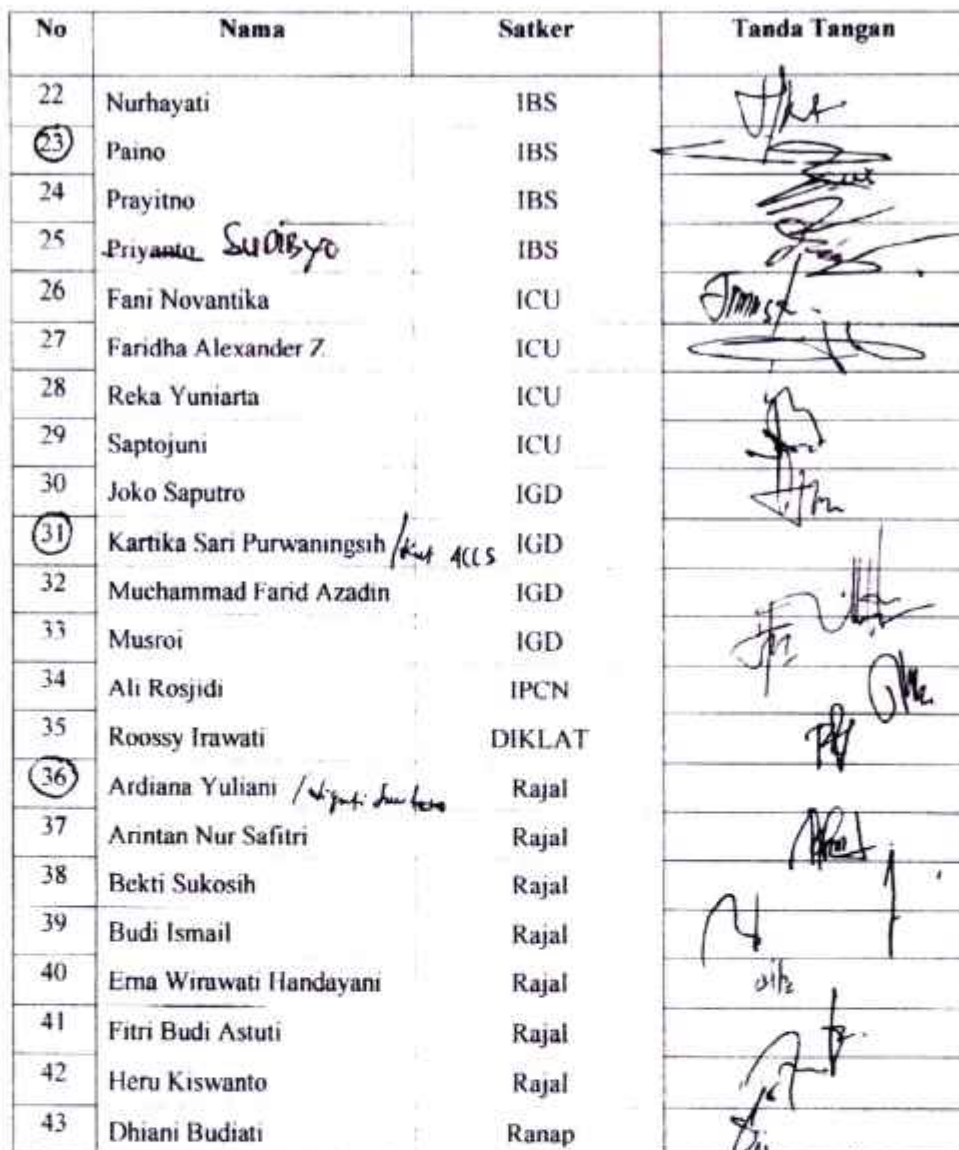 No Nama Satker Tanda Tangan
22 Nurhayati IBS
23 Paino IBS
24 Prayitno IBS
25 Priyanto SUDIBYO IBS
26 Fani Novantika ICU
27 Faridha Alexander Z. ICU
28 Reka Yuniarta ICU
29 Saptojuni ICU
30 Joko Saputro IGD
31 Kartika Sari Purwaningsih / ACLS IGD
32 Muchammad Farid Azadin IGD
33 Musroi IGD
34 Ali Rosjidi IPCN
35 Roossy Irawati DIKLAT
36 Ardiana Yuliani / Rajal
37 Arintan Nur Safitri Rajal
38 Bekti Sukosih Rajal
39 Budi Ismail Rajal
40 Erna Wirawati Handayani Rajal
41 Fitri Budi Astuti Rajal
42 Heru Kiswanto Rajal
43 Dhiani Budiati Ranap